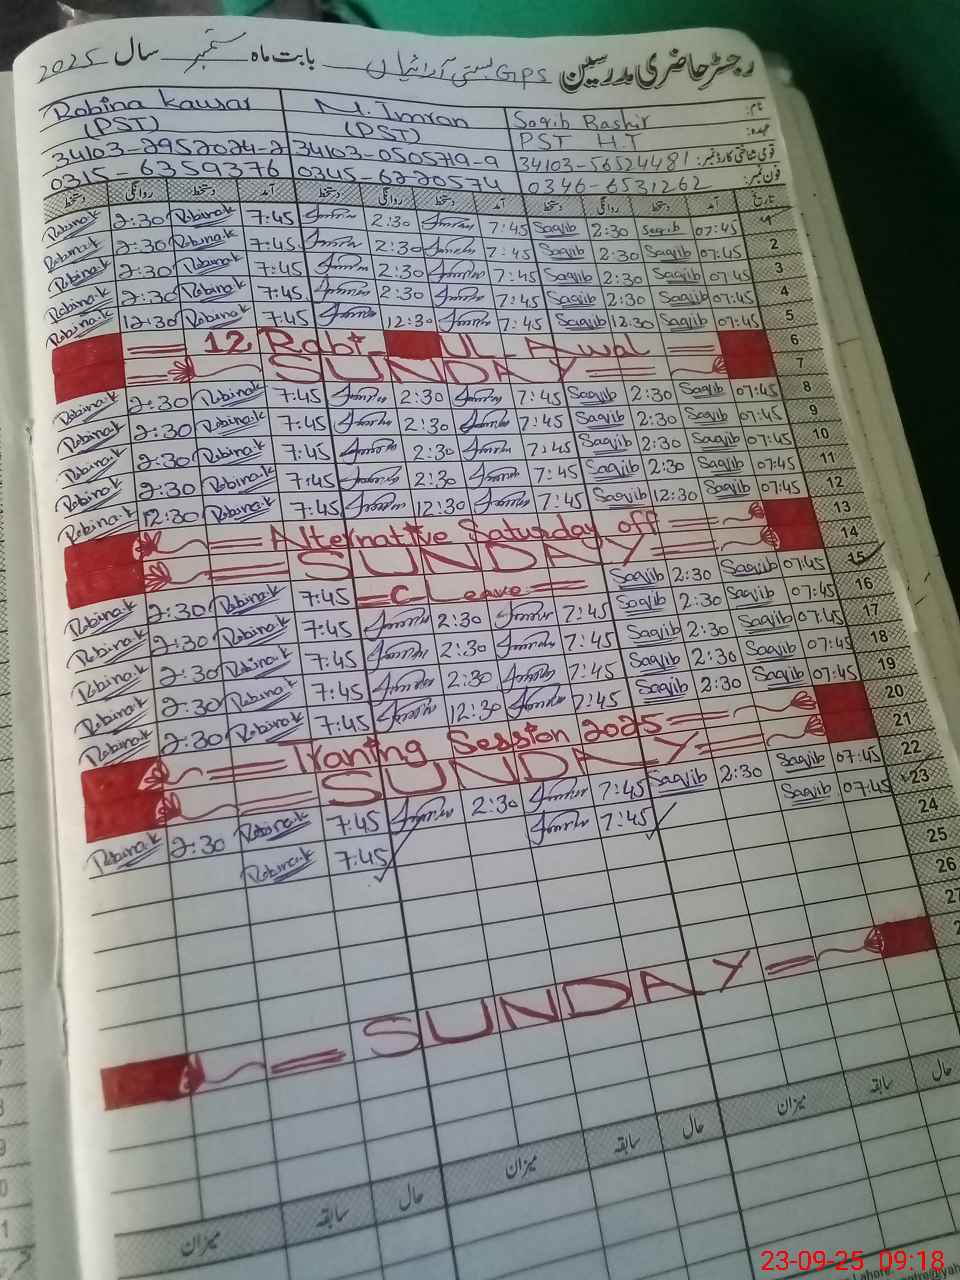 رجسٹر حاضری مدرسین GPS بستی آرائیاں بابت ماہ ستمبر سال 2025
نام: Saqib Bashir M. Imran Robina Kawsar
عہدہ: PST H.T (PST) (PST)
قومی شناختی کارڈ نمبر: 34103-56524481 34103-0505719-9 34103-2952024-2
فون نمبر: 0346-6531262 0345-6220574 0315-6359376
تاریخ آمد دستخط روانگی دستخط آمد دستخط روانگی دستخط آمد دستخط روانگی دستخط
1 07:45 Saqib 2:30 Saqib 7:45 2:30 7:45 Robina.k 2:30 Robina.k
2 07:45 Saqib 2:30 Saqib 7:45 2:30 7:45 Robina.k 2:30 Robina.k
3 07:45 Saqib 2:30 Saqib 7:45 2:30 7:45 Robina.k 2:30 Robina.k
4 07:45 Saqib 2:30 Saqib 7:45 2:30 7:45 Robina.k 2:30 Robina.k
5 07:45 Saqib 12:30 Saqib 7:45 12:30 7:45 Robina.k 12:30 Robina.k
6 12 Rabi_UL_Awal
7 SUNDAY
8 07:45 Saqib 2:30 Saqib 7:45 2:30 7:45 Robina.k 2:30 Robina.k
9 07:45 Saqib 2:30 Saqib 7:45 2:30 7:45 Robina.k 2:30 Robina.k
10 07:45 Saqib 2:30 Saqib 7:45 2:30 7:45 Robina.k 2:30 Robina.k
11 07:45 Saqib 2:30 Saqib 7:45 2:30 7:45 Robina.k 2:30 Robina.k
12 07:45 Saqib 12:30 Saqib 7:45 12:30 7:45 Robina.k 12:30 Robina.k
13 Alternative Saturday off
14 SUNDAY
15 07:45 Saqib 2:30 Saqib C Leave 7:45 Robina.k 2:30 Robina.k
16 07:45 Saqib 2:30 Saqib 7:45 2:30 7:45 Robina.k 2:30 Robina.k
17 07:45 Saqib 2:30 Saqib 7:45 2:30 7:45 Robina.k 2:30 Robina.k
18 07:45 Saqib 2:30 Saqib 7:45 2:30 7:45 Robina.k 2:30 Robina.k
19 07:45 Saqib 2:30 Saqib 7:45 12:30 7:45 Robina.k 2:30 Robina.k
20 Traning Session 2025
21 SUNDAY
22 07:45 Saqib 2:30 Saqib 7:45 2:30 7:45 Robina.k 2:30 Robina.k
23 07:45 Saqib 7:45 7:45 Robina.k
24
25
26
27
SUNDAY
حال سابقہ میزان حال سابقہ میزان حال سابقہ میزان
23-09-25 09:18